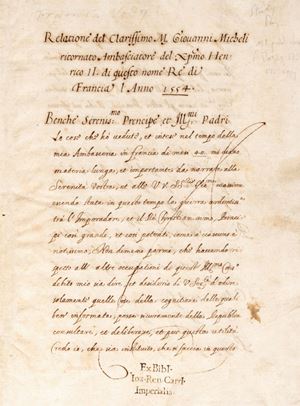 Relatione del Clarissimo M. Giovanni Micheli
ritornato Ambasciatore del Xpmo Hen-
rico II. di questo nome Re di
Francia l'Anno 1554
Benche Serenismo Prencipe et Illmi. Padri.
Le cose che hò vedute, et intese nel tempo della
mia Ambasceria in francia di mesi 40. mi diano
materia lunga, et importante da narrare alla
Serenità Vostra, et alle V V.
essendo state in questo tempo la guerra
trà l'Imperadore, et il Rè Christianissimo, Prenci-
pi così grandi, et così potenti, come è à ciascuno
notissimo; Non dimeno parmi, che havendo ri-
getto all' altre occupationi di
debito mio sia dire
solamente quelle cose, della cognitione delle quali
ben informata, possa sicuramente della Republica
consultare, et deliberare, et per questa utilità
credo io, che sia instituito, che si faccia in questo
Ex Bibl.
Ios. Ren. Card.
Imperialis.